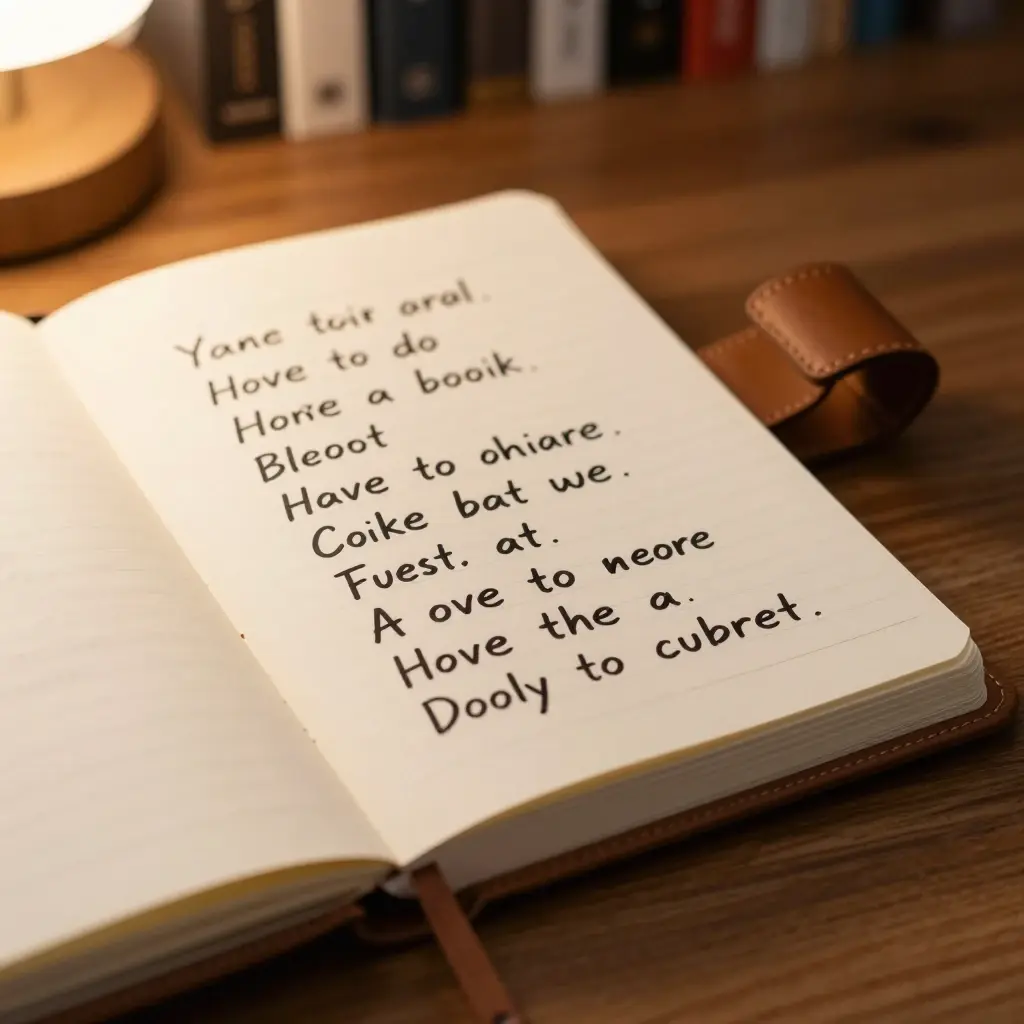 Yane toir aral.
Hove to do
Horie a booik.
Bleoot
Have to ohiare.
Coike bat we.
Fuest. at.
A ove to neore
Hove the a.
Dooly to cubret.